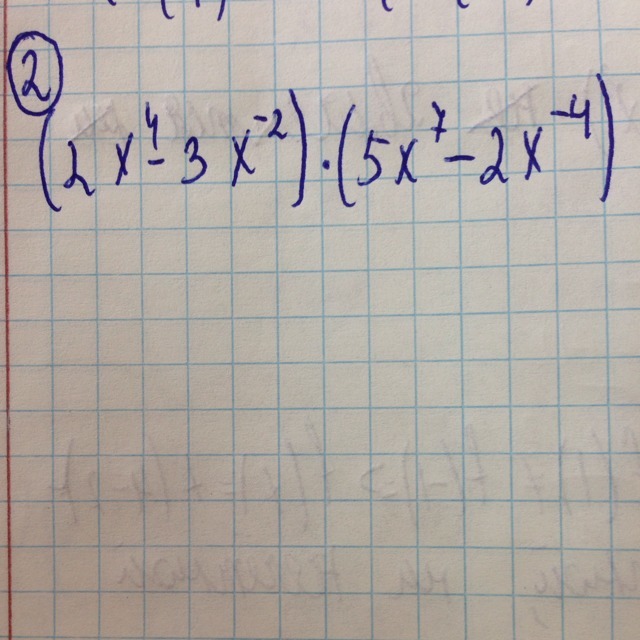 ②
(2x⁴ - 3x⁻²) · (5x⁷ - 2x⁻⁴)